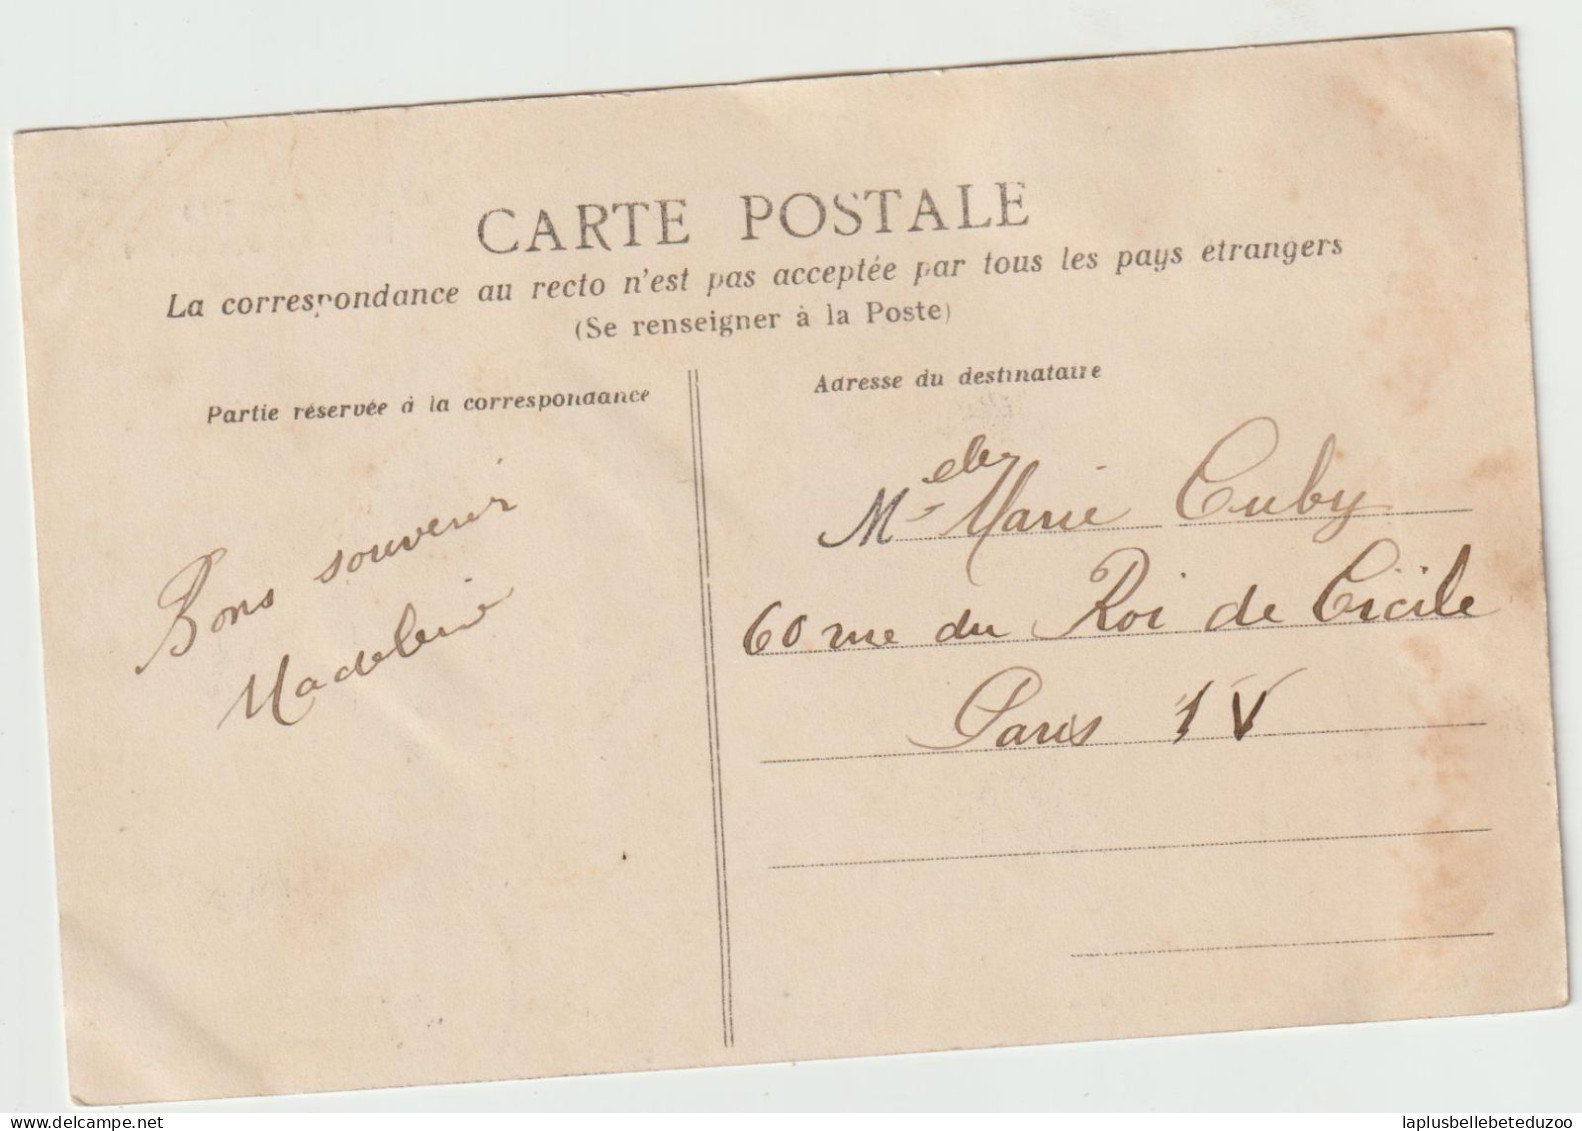 CARTE POSTALE
La correspondance au recto n'est pas acceptée par tous les pays etrangers
(Se renseigner à la Poste)
Partie réservée à la correspondance
Adresse du destinataire
Bons souvenir
Madeleine
Melle Marie Cuby
60 rue du Roi de Cicile
Paris IV
delcampe.net
laplusbellebeteduzoo